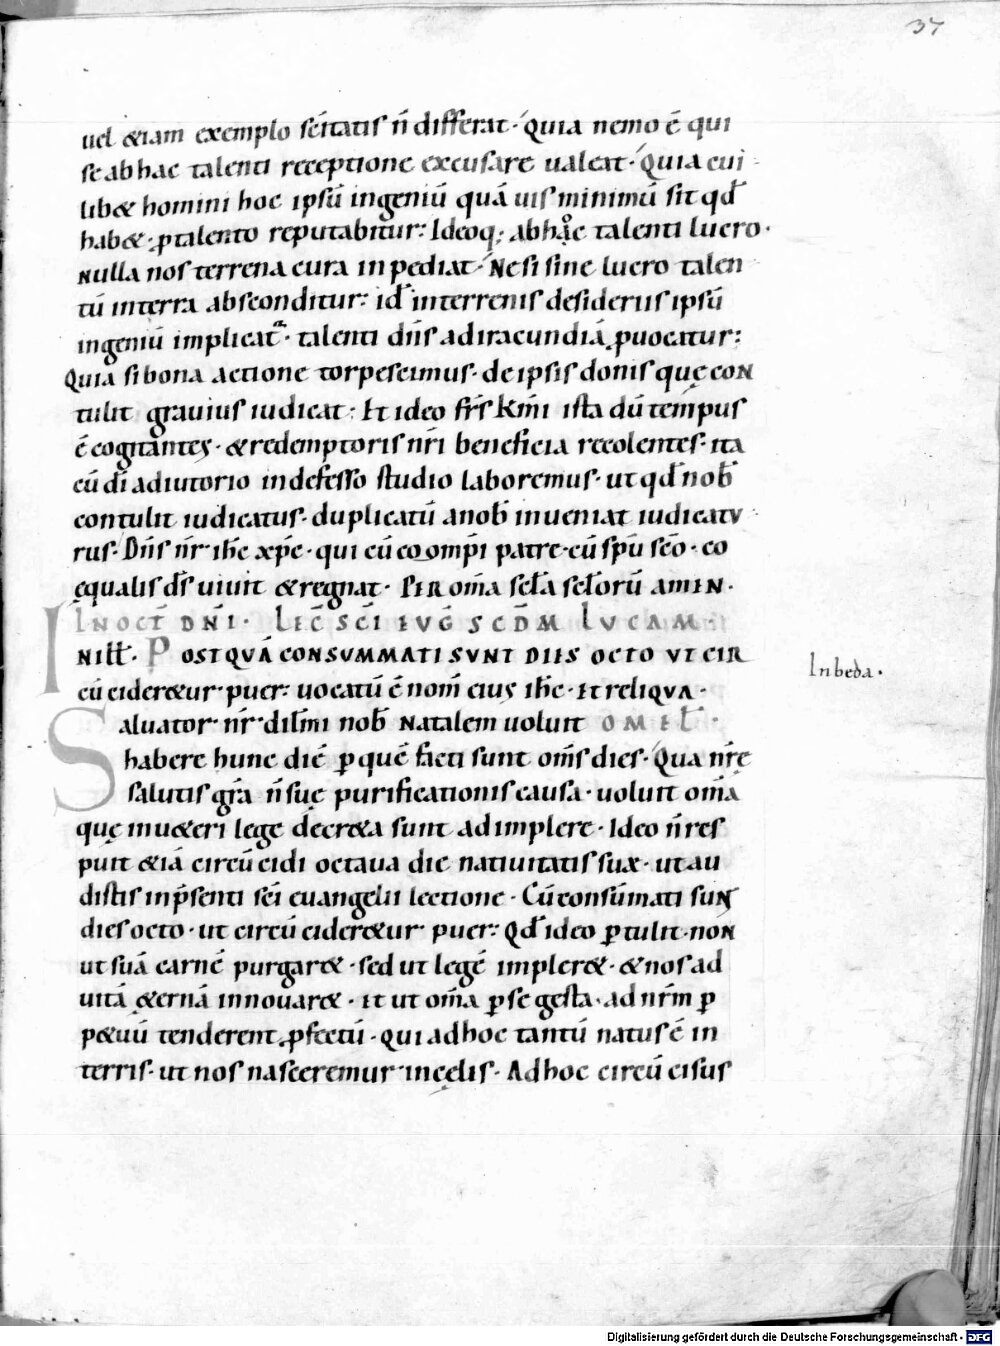 37
uel &iam exemplo sc̄itatis n̄ differat · Quia nemo ē qui
se ab hac talenti receptione excusare ualeat · Quia cui
lib& homini hoc ipsū ingeniū quā uis minimū sit qđ
hab& · ꝓtalento reputabitur : Ideoq; ab hac talenti lucro ·
Nulla nos terrena cura inpediat · Ne si sine lucro talen
tū interra absconditur : id̄ interrenis desideriis ipsū
ingeniū implicat᷑ · talenti dn̄s adiracundiā ꝓuocatur :
Quia si bona actione torpescimus · de ipsis donis quę coN
tulit grauius iudicat : Et ideo fr̄s Km̄i ista dū tempus
ē cogitantes · & redemptoris nr̄i beneficia recolentes · ita
cū dī adiutorio indefesso studio laboremus · ut qđ nob̄
contulit iudicatus · duplicatū anob̄ inueniat iudicatu
rus · Dn̄s nr̄ · ihc̄ xp̄c · qui cū coomp̄i patre · cū sp̄u sc̄o · co
ęqualis dš uiuit & regnat · PER om̄a scl̄a scl̄orū AMEN ·
IN OCT̄ DN̄I · LEC̄ SC̄I EVḠ SCD̄M LVCAM ·
IN ILL̄ · POSTQVĀ CONSVMMATI SVNT DIES OCTO VT CIR
cū cider&ur · puer : uocatū ē nom̄ eius ihc̄ · Et reliqVA ·
Saluator · nr̄ · dil̄mi nob̄ Natalem uoluit OMEL̄ ·
habere hunc diē ꝑ quē facti sunt om̄s dies · Qua nr̄ę
salutis gr̄a n̄ suę purificationis causa · uoluit om̄a
quę inu&eri lege decr&a sunt adimplere · Ideo n̄ res
puit &iā circūcidi octaua die natiuitatis suæ · ut au
distis inp̄senti sc̄i euangelii lectione · Cū consūmati suN
dies octo · ut circū cider&ur · puer : Qđ ideo ꝑtulit · noN
ut suā carnē purgar& · sed ut legē impler& · & nos ad
uitā &ernā innouar& · Et ut om̄a ꝑ se gesta · ad nr̄m ꝑ
p&uū tenderent ꝓfectū · qui adhoc tantū natus ē in
terris · ut nos nasceremur incęlis · Adhoc circū cisus
In beda ·
Digitalisierung gefördert durch die Deutsche Forschungsgemeinschaft · DFG